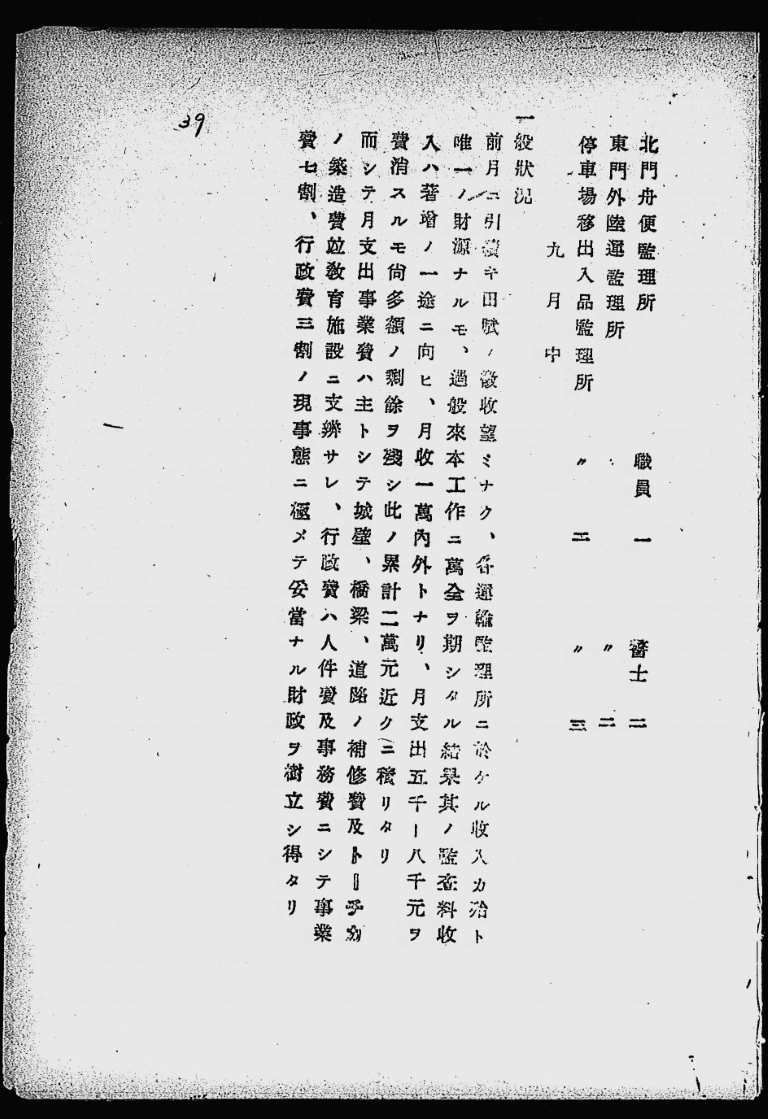 北門舟便監理所　職員　一　警士　二
東門外陸運監理所　〃　二
停車場移出入品監理所　〃　二　〃　三
九月中
一般狀況
前月ニ引續キ田賦ノ徵收望ミナク、各運輸監理所ニ於ケル收入カ殆ト
唯一ノ財源ナルモ、過般來本工作ニ萬全ヲ期シタル結果其ノ監査料收
入ハ著增ノ一途ニ向ヒ、月收一萬內外トナリ、月支出五千ー八千元ヲ
費消スルモ尙多額ノ剩餘ヲ殘シ此ノ累計二萬元近クニ積リタリ
而シテ月支出事業費ハ主トシテ城壁、橋梁、道路ノ補修費及トーチカ
ノ築造費竝敎育施設ニ支辨サレ、行政費ハ人件費及事務費ニシテ事業
費七割、行政費三割ノ現事態ニ極メテ妥當ナル財政ヲ樹立シ得タリ
39